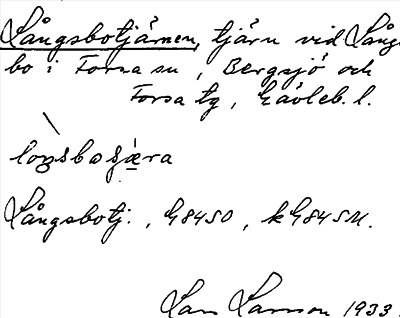 Långsbotjärnen, tjärn vid Långs
bo i Forsa sn, Bergsjö och
Forsa tg, Gävleb. l.
Långsbotj., G84SO, k G84SM.
Lars Larsson 1933.